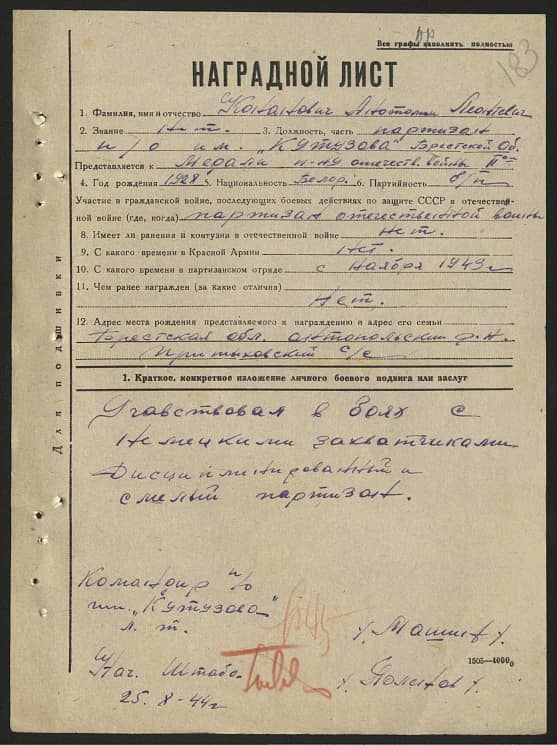 пр
Все графы заполнять полностью
183
НАГРАДНОЙ ЛИСТ
1. Фамилия, имя и отчество Конанович Анатолий
2. Звание Нет. 3. Должность, часть партизан
п/о им. "Кутузова" Брестской Об.
Представляется к Медали п-ну отечеств. войны II ст
4. Год рождения 1928 5. Национальность Белор. 6. Партийность б/п
Участие в гражданской войне, последующих боевых действиях по защите СССР в отечествен-
ной войне (где, когда) партизан отечественной войны
8. Имеет ли ранения и контузии в отечественной войне Нет.
9. С какого времени в Красной Армии Нет.
10. С какого времени в партизанском отряде с Ноября 1943 г
11. Чем ранее награжден (за какие отличия)
Нет.
12. Адрес места рождения представляемого к награждению и адрес его семьи
Брестская обл. антопольский р-н.
с/с
Для подшивки
1. Краткое, конкретное изложение личного боевого подвига или заслуг
Учавствовал в боях с
Немецкими захватчиками
Дисциплинированный и
смелый партизан.
Командир п/о
им. "Кутузова"
л. т.
Нач. Штаба
25. 8-44 г
1505—4000